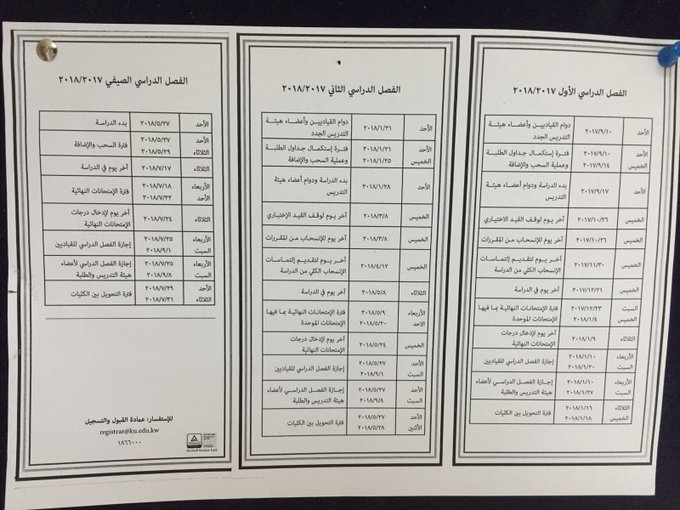 الفصل الدراسي الأول ٢٠١٨/٢٠١٧
الأحد ٢٠١٧/٩/١٠ دوام القياديين وأعضاء هيئة
التدريس الجدد
الأحد ٢٠١٧/٩/١٠ فترة إستكمال جداول الطلبة
الخميس ٢٠١٧/٩/١٤ وعملية السحب والإضافة
الأحد ٢٠١٧/٩/١٧ بدء الدراسة ودوام أعضاء هيئة
التدريس
الخميس ٢٠١٧/١٠/٢٦ آخر يوم لوقف القيد الإختياري
الخميس ٢٠١٧/١٠/٢٦ آخر يوم للإنسحاب من المقررات
الخميس ٢٠١٧/١١/٣٠ آخر يوم لتقديم إلتماسات
الإنسحاب الكلي من الدراسة
الخميس ٢٠١٧/١٢/٢١ آخر يوم في الدراسة
السبت ٢٠١٧/١٢/٢٣ فترة الإمتحانات النهائية بما فيها
الخميس ٢٠١٨/١/٤ الإمتحانات الموحدة
الثلاثاء ٢٠١٨/١/٩ آخر يوم لإدخال درجات
الإمتحانات النهائية
الأربعاء ٢٠١٨/١/١٠ إجازة الفصل الدراسي للقياديين
السبت ٢٠١٨/١/٢٠
الأربعاء ٢٠١٨/١/١٠ إجازة الفصل الدراسي لأعضاء
السبت ٢٠١٨/١/٢٧ هيئة التدريس والطلبة
الثلاثاء ٢٠١٨/١/١٦ فترة التحويل بين الكليات
الخميس ٢٠١٨/١/١٨
الفصل الدراسي الثاني ٢٠١٨/٢٠١٧
الأحد ٢٠١٨/١/٢١ دوام القياديين وأعضاء هيئة
التدريس الجدد
الأحد ٢٠١٨/١/٢١ فترة إستكمال جداول الطلبة
الخميس ٢٠١٨/١/٢٥ وعملية السحب والإضافة
الأحد ٢٠١٨/١/٢٨ بدء الدراسة ودوام أعضاء هيئة
التدريس
الخميس ٢٠١٨/٣/٨ آخر يوم لوقف القيد الإختياري
الخميس ٢٠١٨/٣/٨ آخر يوم للإنسحاب من المقررات
الخميس ٢٠١٨/٤/١٢ آخر يوم لتقديم إلتماسات
الإنسحاب الكلي من الدراسة
الثلاثاء ٢٠١٨/٥/٨ آخر يوم في الدراسة
الأربعاء ٢٠١٨/٥/٩ فترة الإمتحانات النهائية بما فيها
الأحد ٢٠١٨/٥/٢٠ الإمتحانات الموحدة
الخميس ٢٠١٨/٥/٢٤ آخر يوم لإدخال درجات
الإمتحانات النهائية
الأحد ٢٠١٨/٥/٢٧ إجازة الفصل الدراسي للقياديين
السبت ٢٠١٨/٩/١
الأحد ٢٠١٨/٥/٢٧ إجازة الفصل الدراسي لأعضاء
السبت ٢٠١٨/٩/٨ هيئة التدريس والطلبة
الأحد ٢٠١٨/٥/٢٧ فترة التحويل بين الكليات
الأثنين ٢٠١٨/٥/٢٨
الفصل الدراسي الصيفي ٢٠١٨/٢٠١٧
الأحد ٢٠١٨/٥/٢٧ بدء الدراسة
الأحد ٢٠١٨/٥/٢٧ فترة السحب والإضافة
الثلاثاء ٢٠١٨/٥/٢٩
الثلاثاء ٢٠١٨/٧/١٧ آخر يوم في الدراسة
الأربعاء ٢٠١٨/٧/١٨ فترة الإمتحانات النهائية
الأحد ٢٠١٨/٧/٢٢
الثلاثاء ٢٠١٨/٧/٢٤ آخر يوم لإدخال درجات
الإمتحانات النهائية
الأربعاء ٢٠١٨/٧/٢٥ إجازة الفصل الدراسي للقياديين
السبت ٢٠١٨/٩/١
الأربعاء ٢٠١٨/٧/٢٥ إجازة الفصل الدراسي لأعضاء
السبت ٢٠١٨/٩/٨ هيئة التدريس والطلبة
الأحد ٢٠١٨/٧/٢٩ فترة التحويل بين الكليات
الثلاثاء ٢٠١٨/٧/٣١
للإستفسار: عمادة القبول والتسجيل
registrar@ku.edu.kw
١٨٦٦٠٠٠